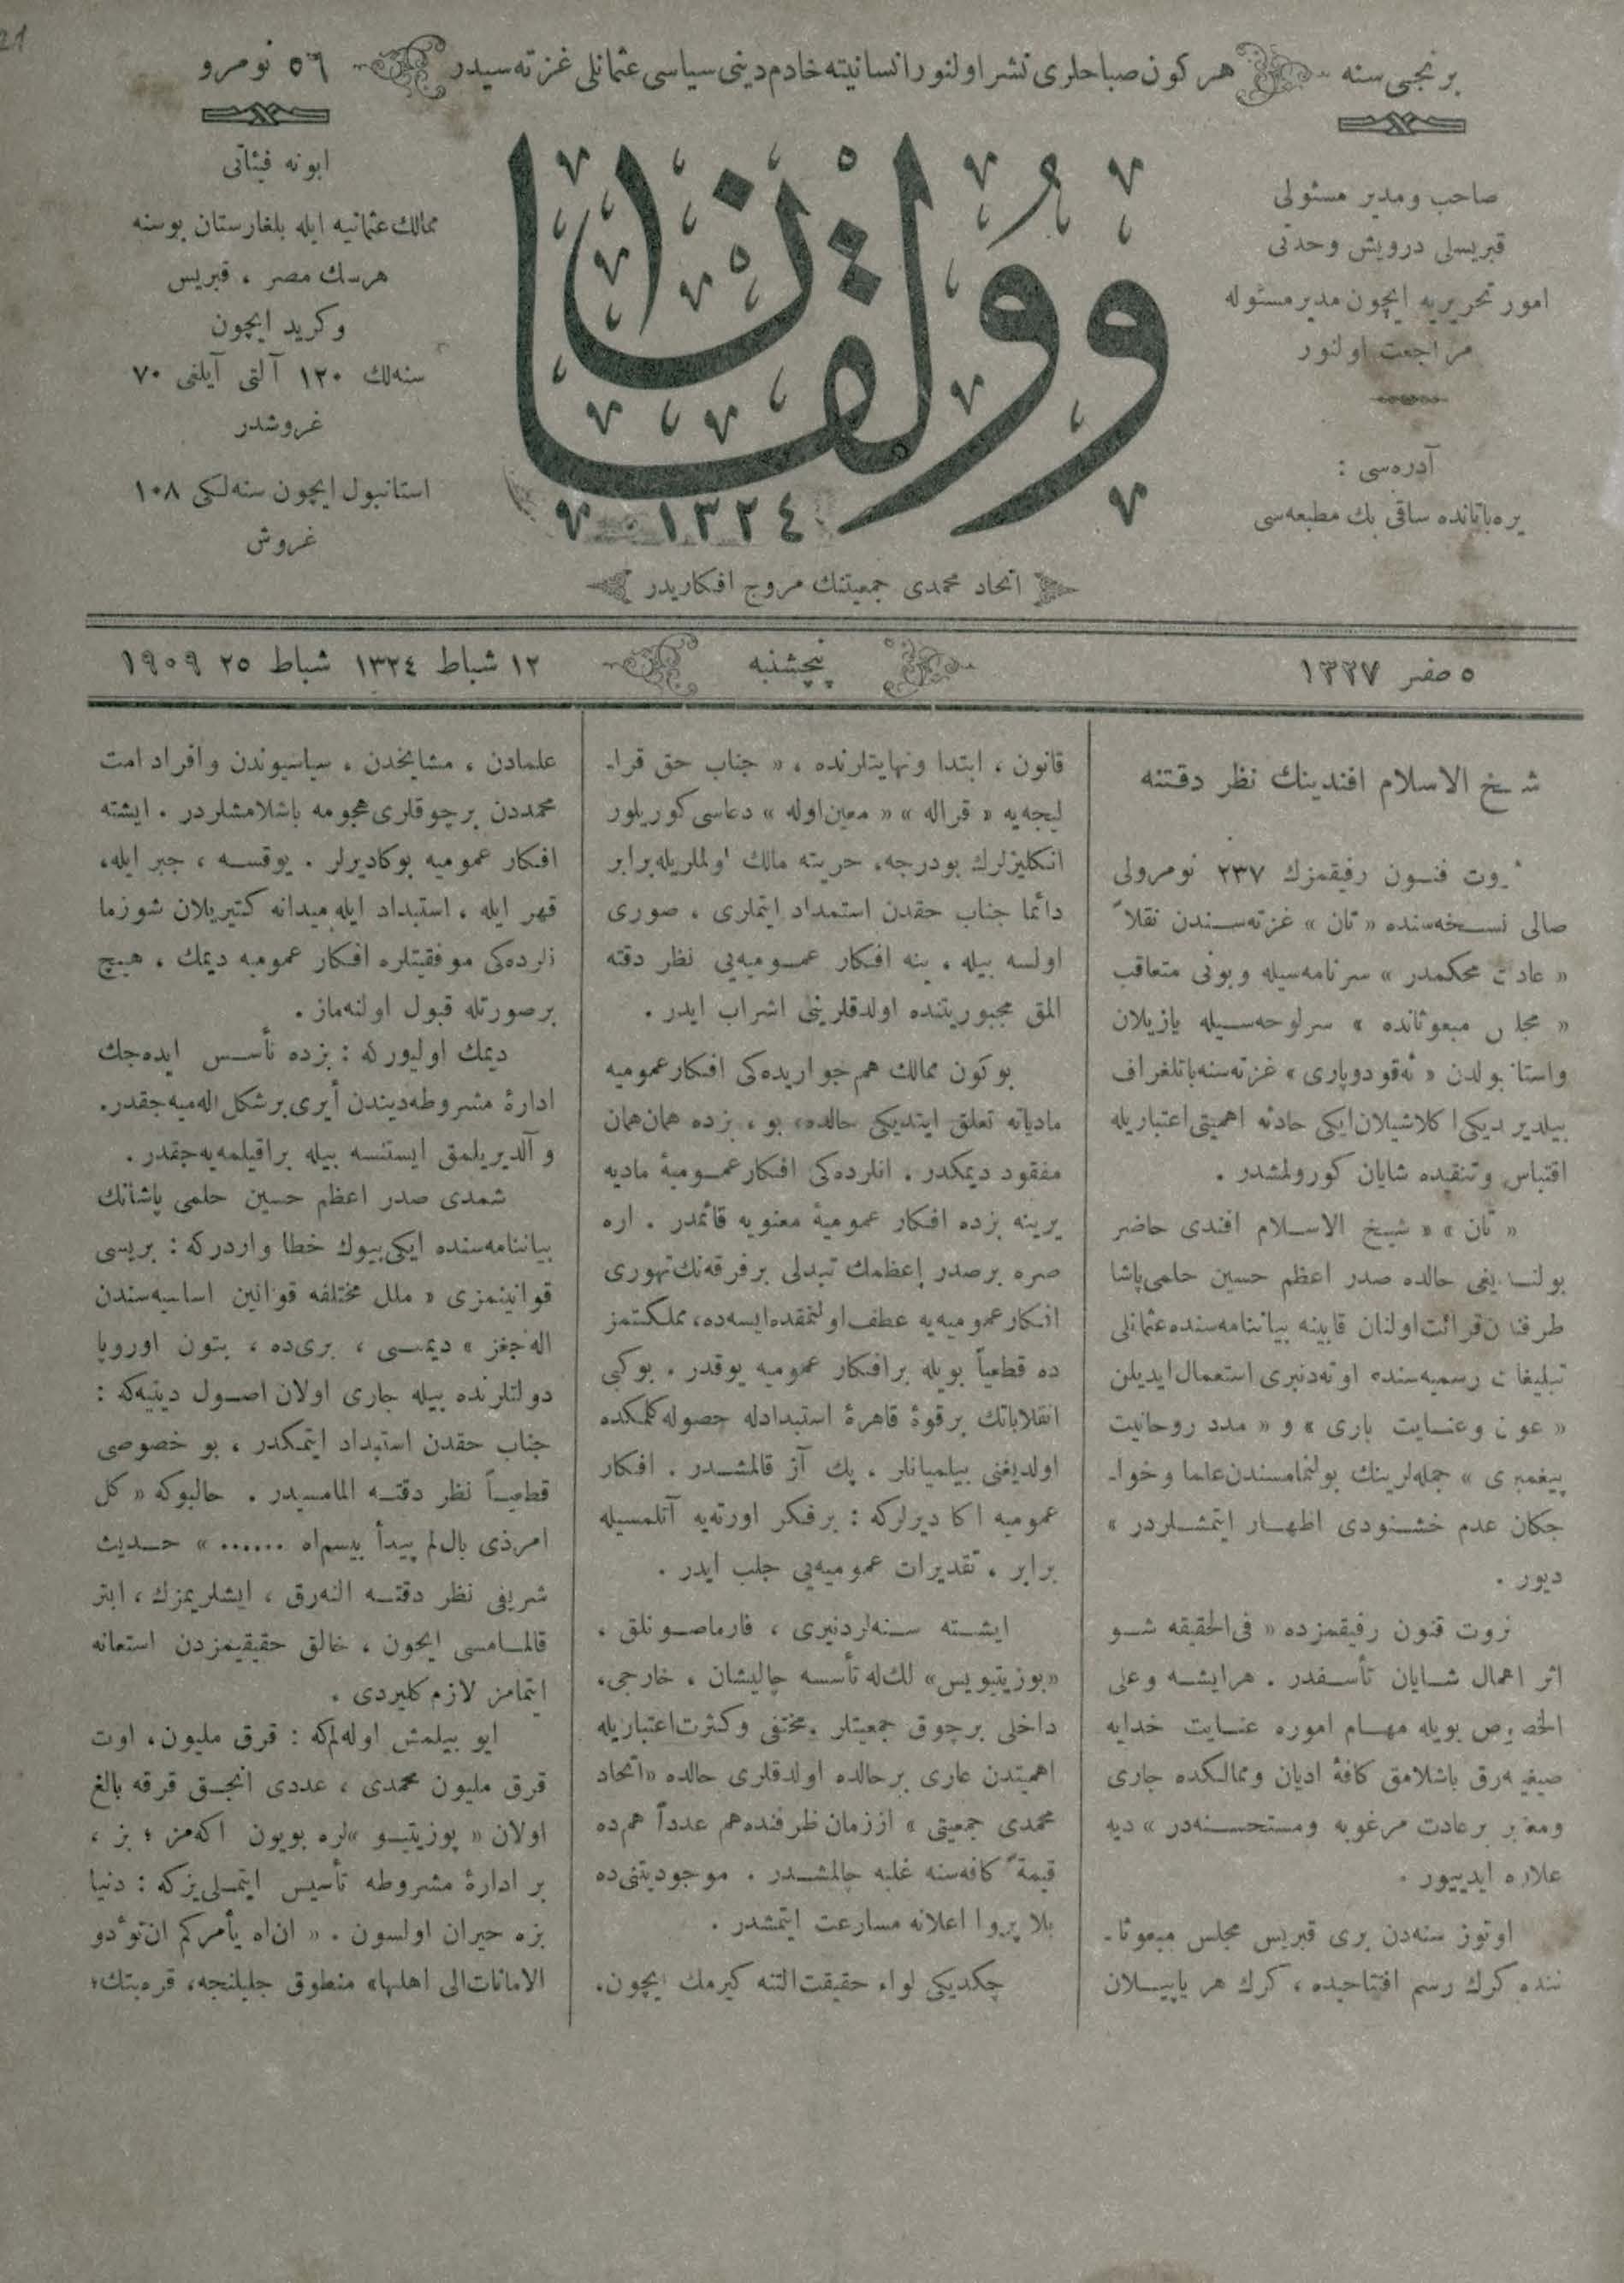 برنجی سنه
هر كون صباحلری نشر اولنور انسانیته خادم دینی سیاسی عثمانلی غزته سیدر
٥٦ نومرو
صاحب ومدیر مسئولی
قبریسلی درویش وحدتی
امور تحریریه ایچون مدیر مسئوله
مراجعت اولنور
آدره‌سی :
یره‌باتانده ساقی بك مطبعه‌سی
وولقان
١٣٢٤
اتحاد محمدی جمعیتنك مروج افكاریدر
ابونه فیئاتی
ممالك عثمانیه ایله بلغارستان بوسنه
هرسك مصر ، قبریس
وكرید ایچون
سنه‌لك ١٢٠ آلتی آیلغی ٧٠
غروشدر
استانبول ایچون سنه‌لكی ١٠٨
غروش
٥ صفر ١٣٢٧
پنچشنبه
١٢ شباط ١٣٢٤ شباط ٢٥ ١٩٠٩
شیخ الاسلام افندینك نظر دقتنه
روت فنون رفیقمزك ٢٣٧ نومرولی
صالی نسخه‌سنده « تان » غزته‌سندن نقلاً
« عادت محكمدر » سرنامه‌سیله وبونی متعاقب
« مجلس مبعوثانده » سرلوحه‌سیله یازیلان
واستانبولدن « ئه‌قودوپاری » غزته‌سنه باتلغراف
بیلدیردیكی اكلاشیلان ایكی حادثه اهمیتی اعتباریله
اقتباس وتنقیده شایان كورولمشدر .
« تان » « شیخ الاسلام افندی حاضر
بولندیغی حالده صدر اعظم حسین حلمی پاشا
طرفندن قرائت اولنان قابینه بیاننامه‌سنده عثمانلی
تبلیغات رسمیه‌سنده اوته‌دنبری استعمال ایدیلن
« عون وعنایت باری » و « مدد روحانیت
پیغمبری » جمله‌لرینك بولنمامسندن علما وخوا-
جكان عدم خشنودی اظهار ایتمشلردر »
دیور .
ثروت فنون رفیقمزده « فی‌الحقیقه شو
اثر اهمال شایان تأسفدر . هر ایشه وعلی
الخصوص بویله مهام اموره عنایت خدایه
صیغینه‌رق باشلامق كافهٔ ادیان وممالكده جاری
ومعتبر برعادت مرغوبه ومستحسنه‌در » دیه
علاوه ایدییور .
اوتوز سنه‌دن بری قبریس مجلس مبعوثا-
ننده كرك رسم افتتاحیده ، كرك هر یاپیلان
قانون ، ابتدا ونهایتلرنده ، « جناب حق قرا-
لیچه‌یه « قراله » « معین اوله » دعاسی كوریلور
انكلیزلرك بودرجه، حریته مالك اولملریله برابر
دائما جناب حقدن استمداد ایتملری ، صوری
اولسه بیله ، ینه افكار عمومیه‌یی نظر دقته
المق مجبوریتنده اولدقلرینی اشراب ایدر .
بوكون ممالك همجواریده‌كی افكار عمومیه
مادیاته تعلق ایتدیكی حالده، بو ، بزده همان همان
مفقود دیمكدر . انلرده‌كی افكار عمومیهٔ مادیه
یرینه بزده افكار عمومیهٔ معنویه قائمدر . اره
صره برصدر اعظمك تبدلی برفرقه‌نك تهوری
افكار عمومیه‌یه عطف اولنمقده ایسه‌ده، مملكتمز
ده قطعیاً بویله برافكار عمومیه یوقدر . بوكبی
انقلاباتك برقوهٔ قاهرهٔ استبدادله حصوله كلمكده
اولدیغنی بیلمیانلر ، پك آز قالمشدر . افكار
عمومیه اكا دیرلركه : برفكر اورته‌یه آتلمسیله
برابر ، تقدیرات عمومیه‌یی جلب ایدر .
ایشته سنه‌لردنبری ، فارماصونلق ،
«پوزیتیویس» لك‌له تأسسه چالیشان ، خارجی،
داخلی برچوق جمعیتلر ، مختفی وكثرت اعتباریله
اهمیتدن عاری برحالده اولدقلری حالده «اتحاد
محمدی جمعیتی » اززمان ظرفنده هم عدداً هم‌ده
قیمةً كافه‌سنه غلبه چالمشدر . موجودیتنی‌ده
بلا پروا اعلانه مسارعت ایتمشدر .
چكدیكی لواء حقیقت التنه كیرمك ایچون،
علمادن ، مشایخدن ، سیاسیوندن وافراد امت
محمددن برچوقلری هجومه باشلامشلردر . ایشته
افكار عمومیه بوكادیرلر . یوقسه ، جبر ایله،
قهر ایله ، استبداد ایله میدانه كتیریلان شوزما
نلرده‌كی موفقیتلره افكار عمومیه دیمك ، هیچ
برصورتله قبول اولنه‌ماز .
دیمك اولیوركه : بزده تأسس ایده‌جك
ادارهٔ مشروطه دیندن آیری برشكل اله‌میه‌جقدر.
و آلدیریلمق ایستنسه بیله براقیلمه‌یه‌جقدر .
شمدی صدر اعظم حسین حلمی پاشانك
بیاننامه‌سنده ایكی بیوك خطا واردركه : بریسی
قوانینمزی « ملل مختلفه قوانین اساسیه‌سندن
اله‌جغز » دیمسی ، بری‌ده ، بتون اوروپا
دولتلرنده بیله جاری اولان اصول دینیه‌كه :
جناب حقدن استمداد ایتمكدر ، بو خصوصی
قطعیاً نظر دقته المامسیدر . حالبوكه « كل
امرذی بال لم یبدأ ببسم‌اه ...... » حدیث
شریفی نظر دقته اله‌رق ، ایشلریمزك ، ابتر
قالمامسی ایچون ، خالق حقیقیمزدن استعانه
ایتمامز لازم كلیردی .
ایو بیلمش اوله‌لم‌كه : قرق ملیون، اوت
قرق ملیون محمدی ، عددی انجق قرقه بالغ
اولان « پوزیتیو »لره بویون اكه‌مز ؛ بز ،
بر ادارهٔ مشروطه تأسیس ایتملی‌یزكه : دنیا
بزه حیران اولسون . « ان‌اه یأمركم ان تؤدو
الامانات‌الی اهلها» منطوق جلیلنجه، قره‌بتك؛